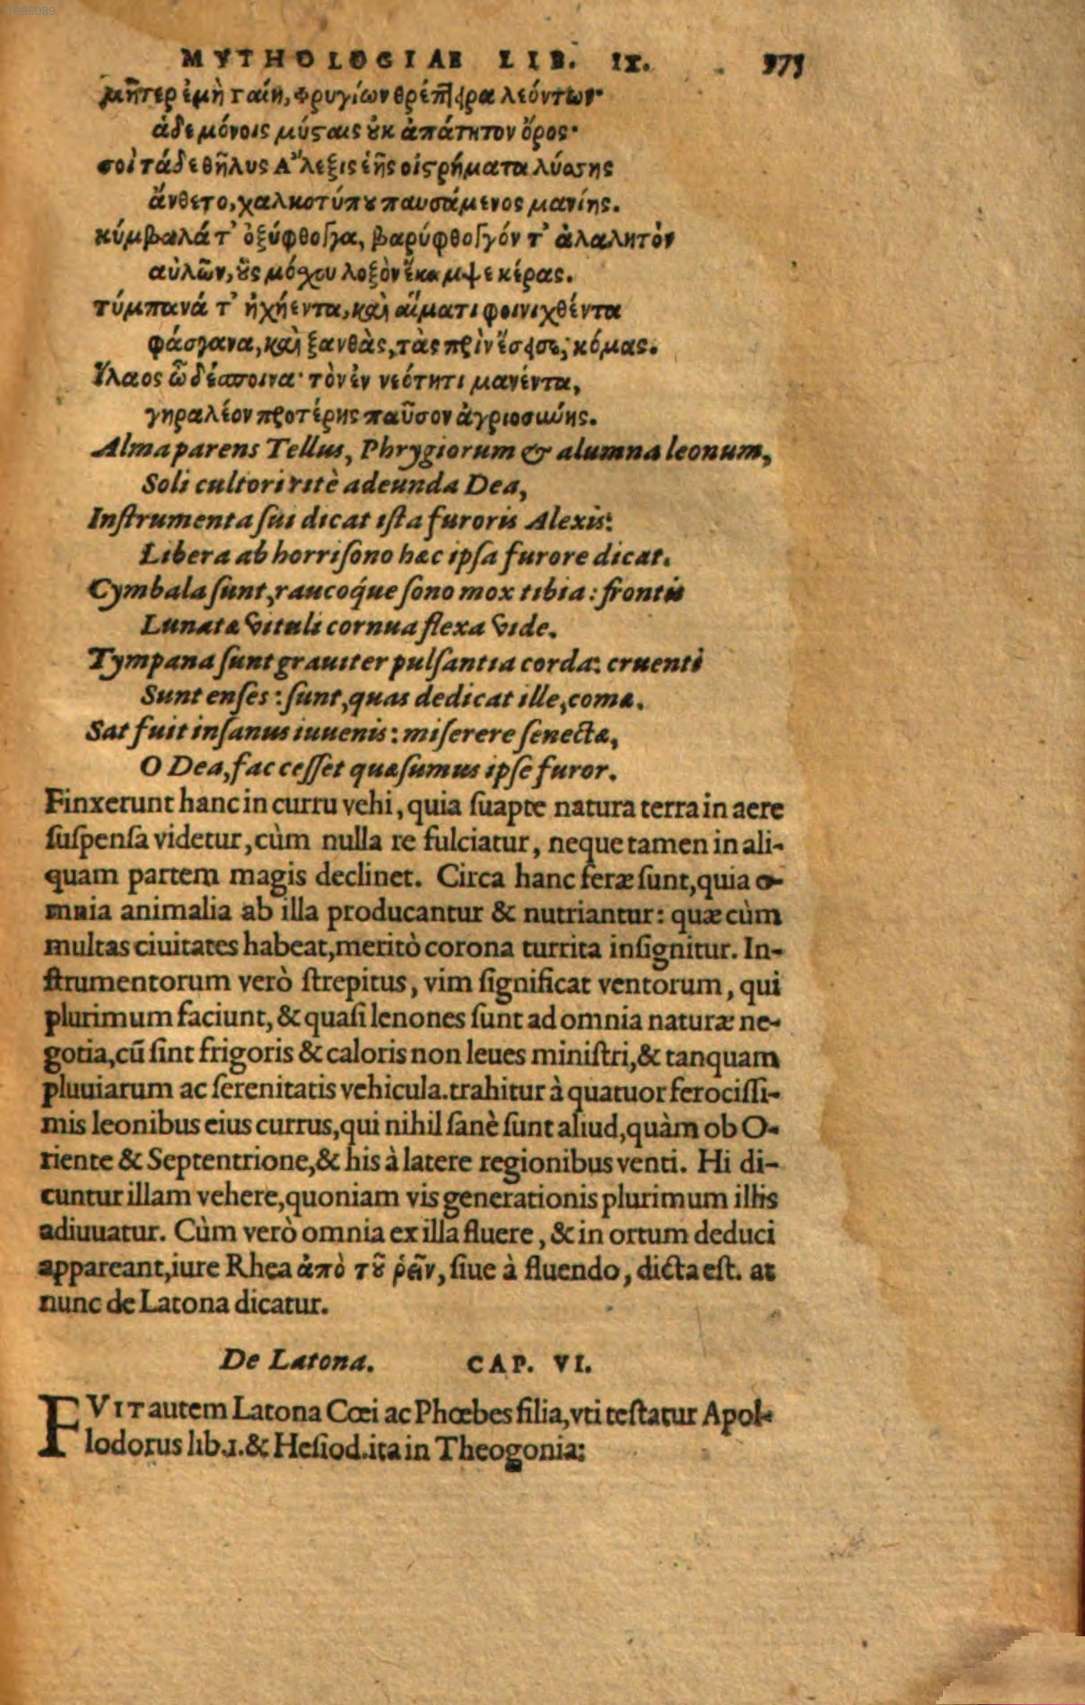 MYTHOLOGIAE LIB. IX. 975
μῆτερ ἐμὴ Γαίη, Φρυγίων θρέπτειρα λεόντων·
ἁδε μόνοις μύσταις οὐκ ἀπάτητον ὄρος·
σοὶ τάδε θῆλυς Ἄλεξις ἑῆς οἰστρήματα λύσσης
ἄνθετο, χαλκοτύπου παυσάμενος μανίης.
κύμβαλά τ' ὀξύφθογγα, βαρύφθογγόν τ' ἀλαλητὸν
αὐλῶν, οὓς μόσχου λοξὸν ἔκαμψε κέρας.
τύμπανά τ' ἠχήεντα, καὶ αἵματι φοινιχθέντα
φάσγανα, καὶ ξανθὰς, τὰς πρὶν ἔσεισε, κόμας.
ἵλαος ὦ δέσποινα· τὸν ἐν νεότητι μανέντα,
γηραλέον προτέρης παῦσον ἀγριοσύνης.
Alma parens Tellus, Phrygiorum & alumna leonum,
Soli cultori ritè adeunda Dea,
Instrumenta sui dicat ista furoris Alexis:
Libera ab horrisono hæc ipsa furore dicat.
Cymbala sunt, raucoq́ue sono mox tibia: frontis
Lunata vituli cornua flexa vide.
Tympana sunt grauiter pulsantia corda: cruenti
Sunt enses: sunt, quas dedicat ille, comæ.
Sat fuit insanus iuuenis: miserere senectæ,
O Dea, fac cesset quæsumus ipse furor.
Finxerunt hanc in curru vehi, quia suapte natura terra in aere
suspensa videtur, cùm nulla re fulciatur, neque tamen in ali-
quam partem magis declinet. Circa hanc feræ sunt, quia o-
mnia animalia ab illa producantur & nutriantur: quæ cùm
multas ciuitates habeat, meritò corona turrita insignitur. In-
strumentorum verò strepitus, vim significat ventorum, qui
plurimum faciunt, & quasi lenones sunt ad omnia naturæ ne-
gotia, cũ sint frigoris & caloris non leues ministri, & tanquam
pluuiarum ac serenitatis vehicula. trahitur à quatuor ferocissi-
mis leonibus eius currus, qui nihil sanè sunt aliud, quàm ob O-
riente & Septentrione, & his à latere regionibus venti. Hi di-
cuntur illam vehere, quoniam vis generationis plurimum illis
adiuuatur. Cùm verò omnia ex illa fluere, & in ortum deduci
appareant, iure Rhea ἀπὸ τοῦ ῥεῖν, siue à fluendo, dicta est. at
nunc de Latona dicatur.
De Latona. CAP. VI.
FVIT autem Latona Cœi ac Phœbes filia, vti testatur Apol-
lodorus lib.1. & Hesiod. ita in Theogonia: